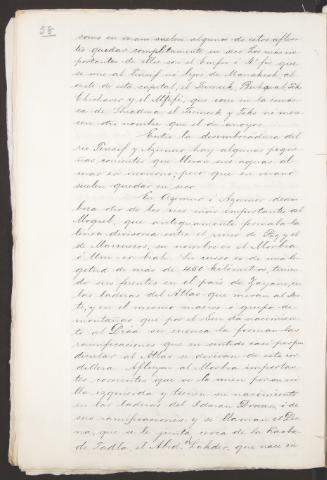 58
como en verano suelen algunos de estos afluen-
tes quedar completamente en seco los mas im-
portantes de ellos son el Enfis ó N'fis que
se une al Tensif no lejos de Marrakech, al
oeste de esta capital, el
Chichaua y el que corre en la comar-
ca de Shiadma, el y no mere-
cen otro nombre que el de arroyos.
Entre la desembocadura del
río Tensif y Azimur hay algunas peque-
ñas corrientes que llevan sus aguas al
mar en invierno; pero que en verano
suelen quedar en seco
En Azimur ó Azamor desem-
boca otro de los rios mas importantes del
Mogreb, que antiguamente formaba la
linea divisoria entre el reino de Fez y el
de Marruecos, su nombre es el Morbea
ó Um-er-biah. Su curso es de una lon-
gitud de mas de 450 kilometros, tenien-
do sus fuentes en el pais de Zayan, en
las laderas del Atlas que miran al Oes-
te, y en el mismo macizo ó grupo de
montañas que por el Sur da nacimien-
to al Draa su cuenca la forman las
ramificaciones que en sentido casi perpen-
dicular al Atlas se derivan de esta cor-
dillera. Afluyen al Morbea importan-
tes corrientes que se le unen por su ori-
lla izquierda y tienen su nacimiento
en las laderas del ó de
sus ramificaciones y se llaman el De-
rna, que se le junta cerca de la Kasba
de Tadla, el Abid ó Lakdar, que nace en